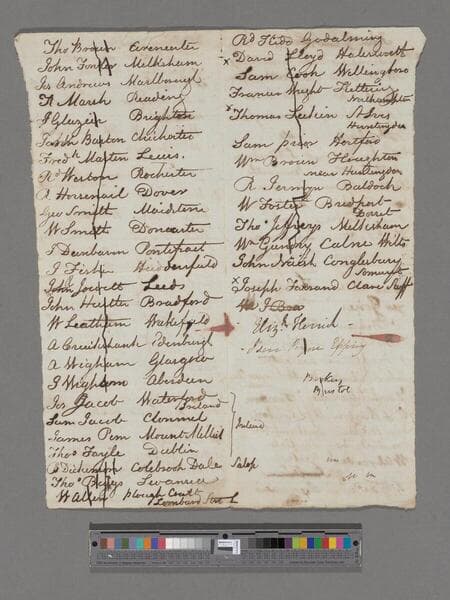 Tho Brown Cirencester
John Fowler Melksham
Jos Andrews Marlborough
Marsh Reading
J Glazier Brighton
Barton Chichester
Fredk Marten Lewes.
Rd Weston Rochester
R Horsenail Dover
Geo Smith Maidstone
W Smith Doncaster
Pontefract
J Fisher Huddersfield
John Jowett Leeds
John Hustler Bradford
W Leatham Wakefield
A Cruickshank Edenburgh
A Wigham Glasgow
J Wigham Aberdeen
Jos Jacob Waterford
Ireland
Sam Jacob Clonmel
James Pim Mount Mellick
Thos Fayle Dublin
Dickenson Colebrook Dale
Thos Swansea
W Allen Plough Court
Lombard Street
Ireland
Salop
Rd Godalming
x David Lloyd Halesworth
Sam Cook Wellingboro
Francis Wright Kettering
Northampton
x Thomas St Ives
Huntingdon
Sam Hertford
Wm Brown Houghton
near Huntingdon
R Jermyn Baldock
W Foster Bridport
Dorset
Thos Jefferys Melksham
Wm Gundry Calne Wilts
John Naish Congersbury
Somerset
x Joseph Clare Suff
Elizh Herrick
Epping
Bristol